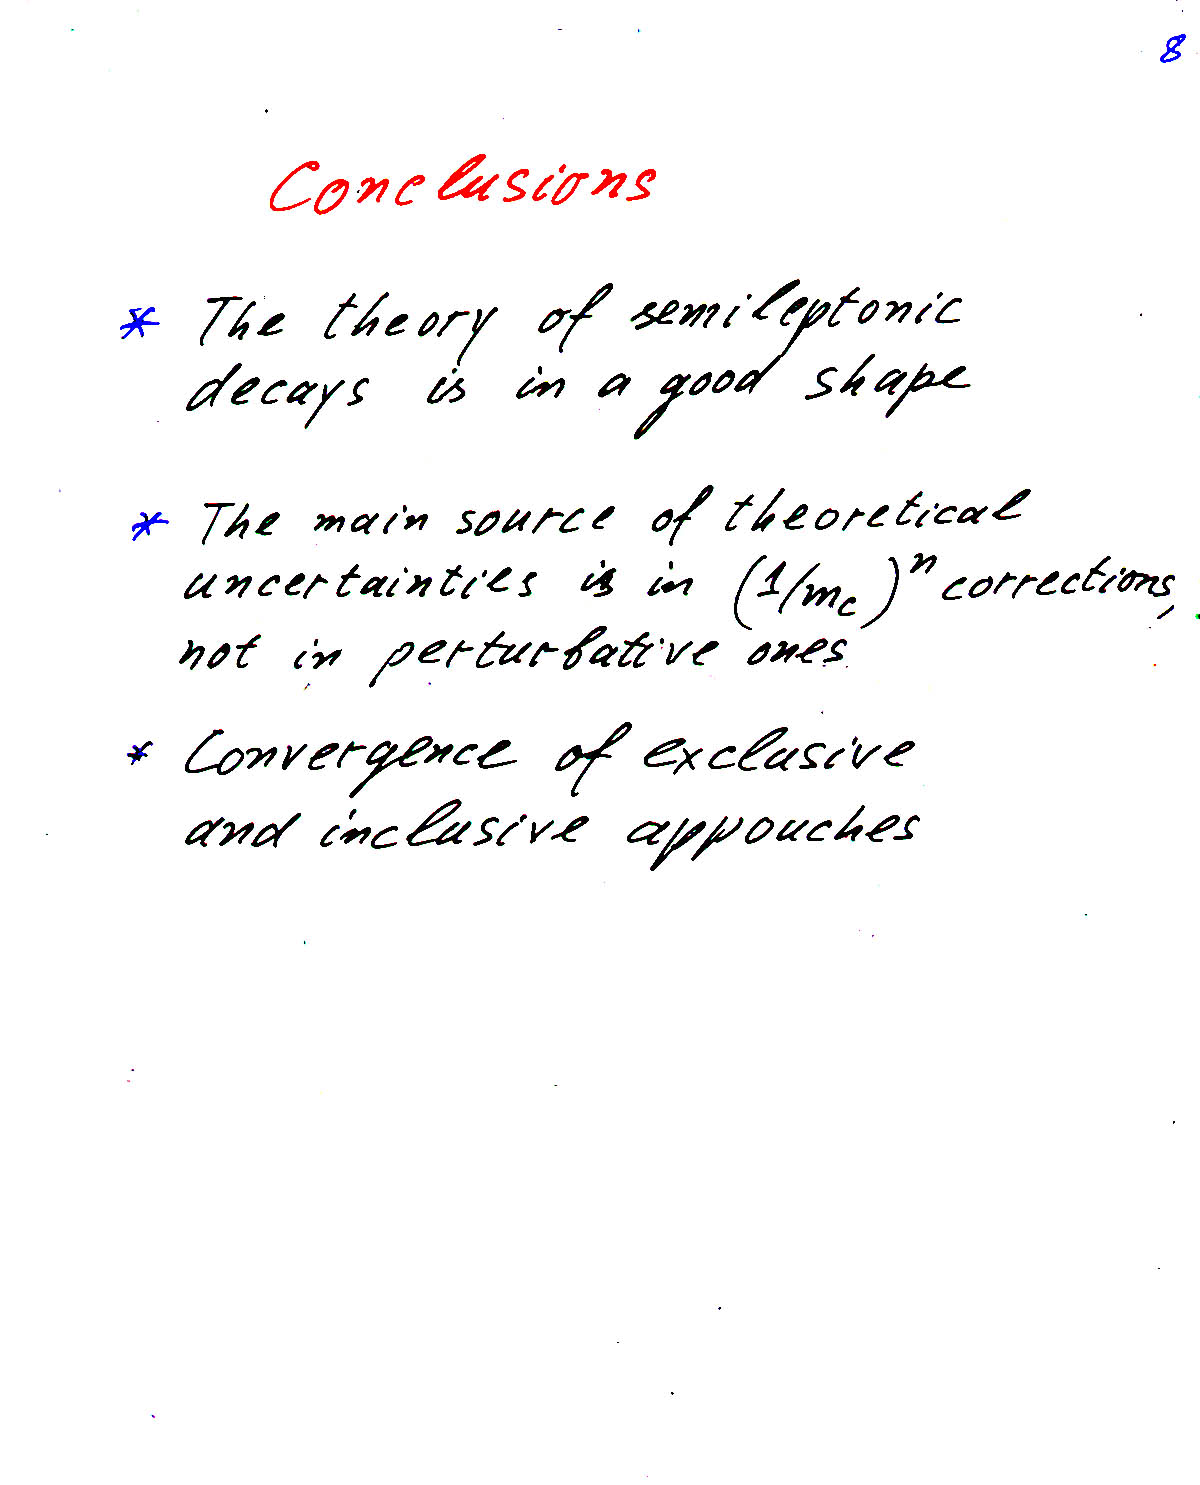 8
Conclusions
* The theory of semileptonic
decays is in a good shape
* The main source of theoretical
uncertainties is in (1/mc)^n corrections,
not in perturbative ones.
* Convergence of exclusive
and inclusive appouches